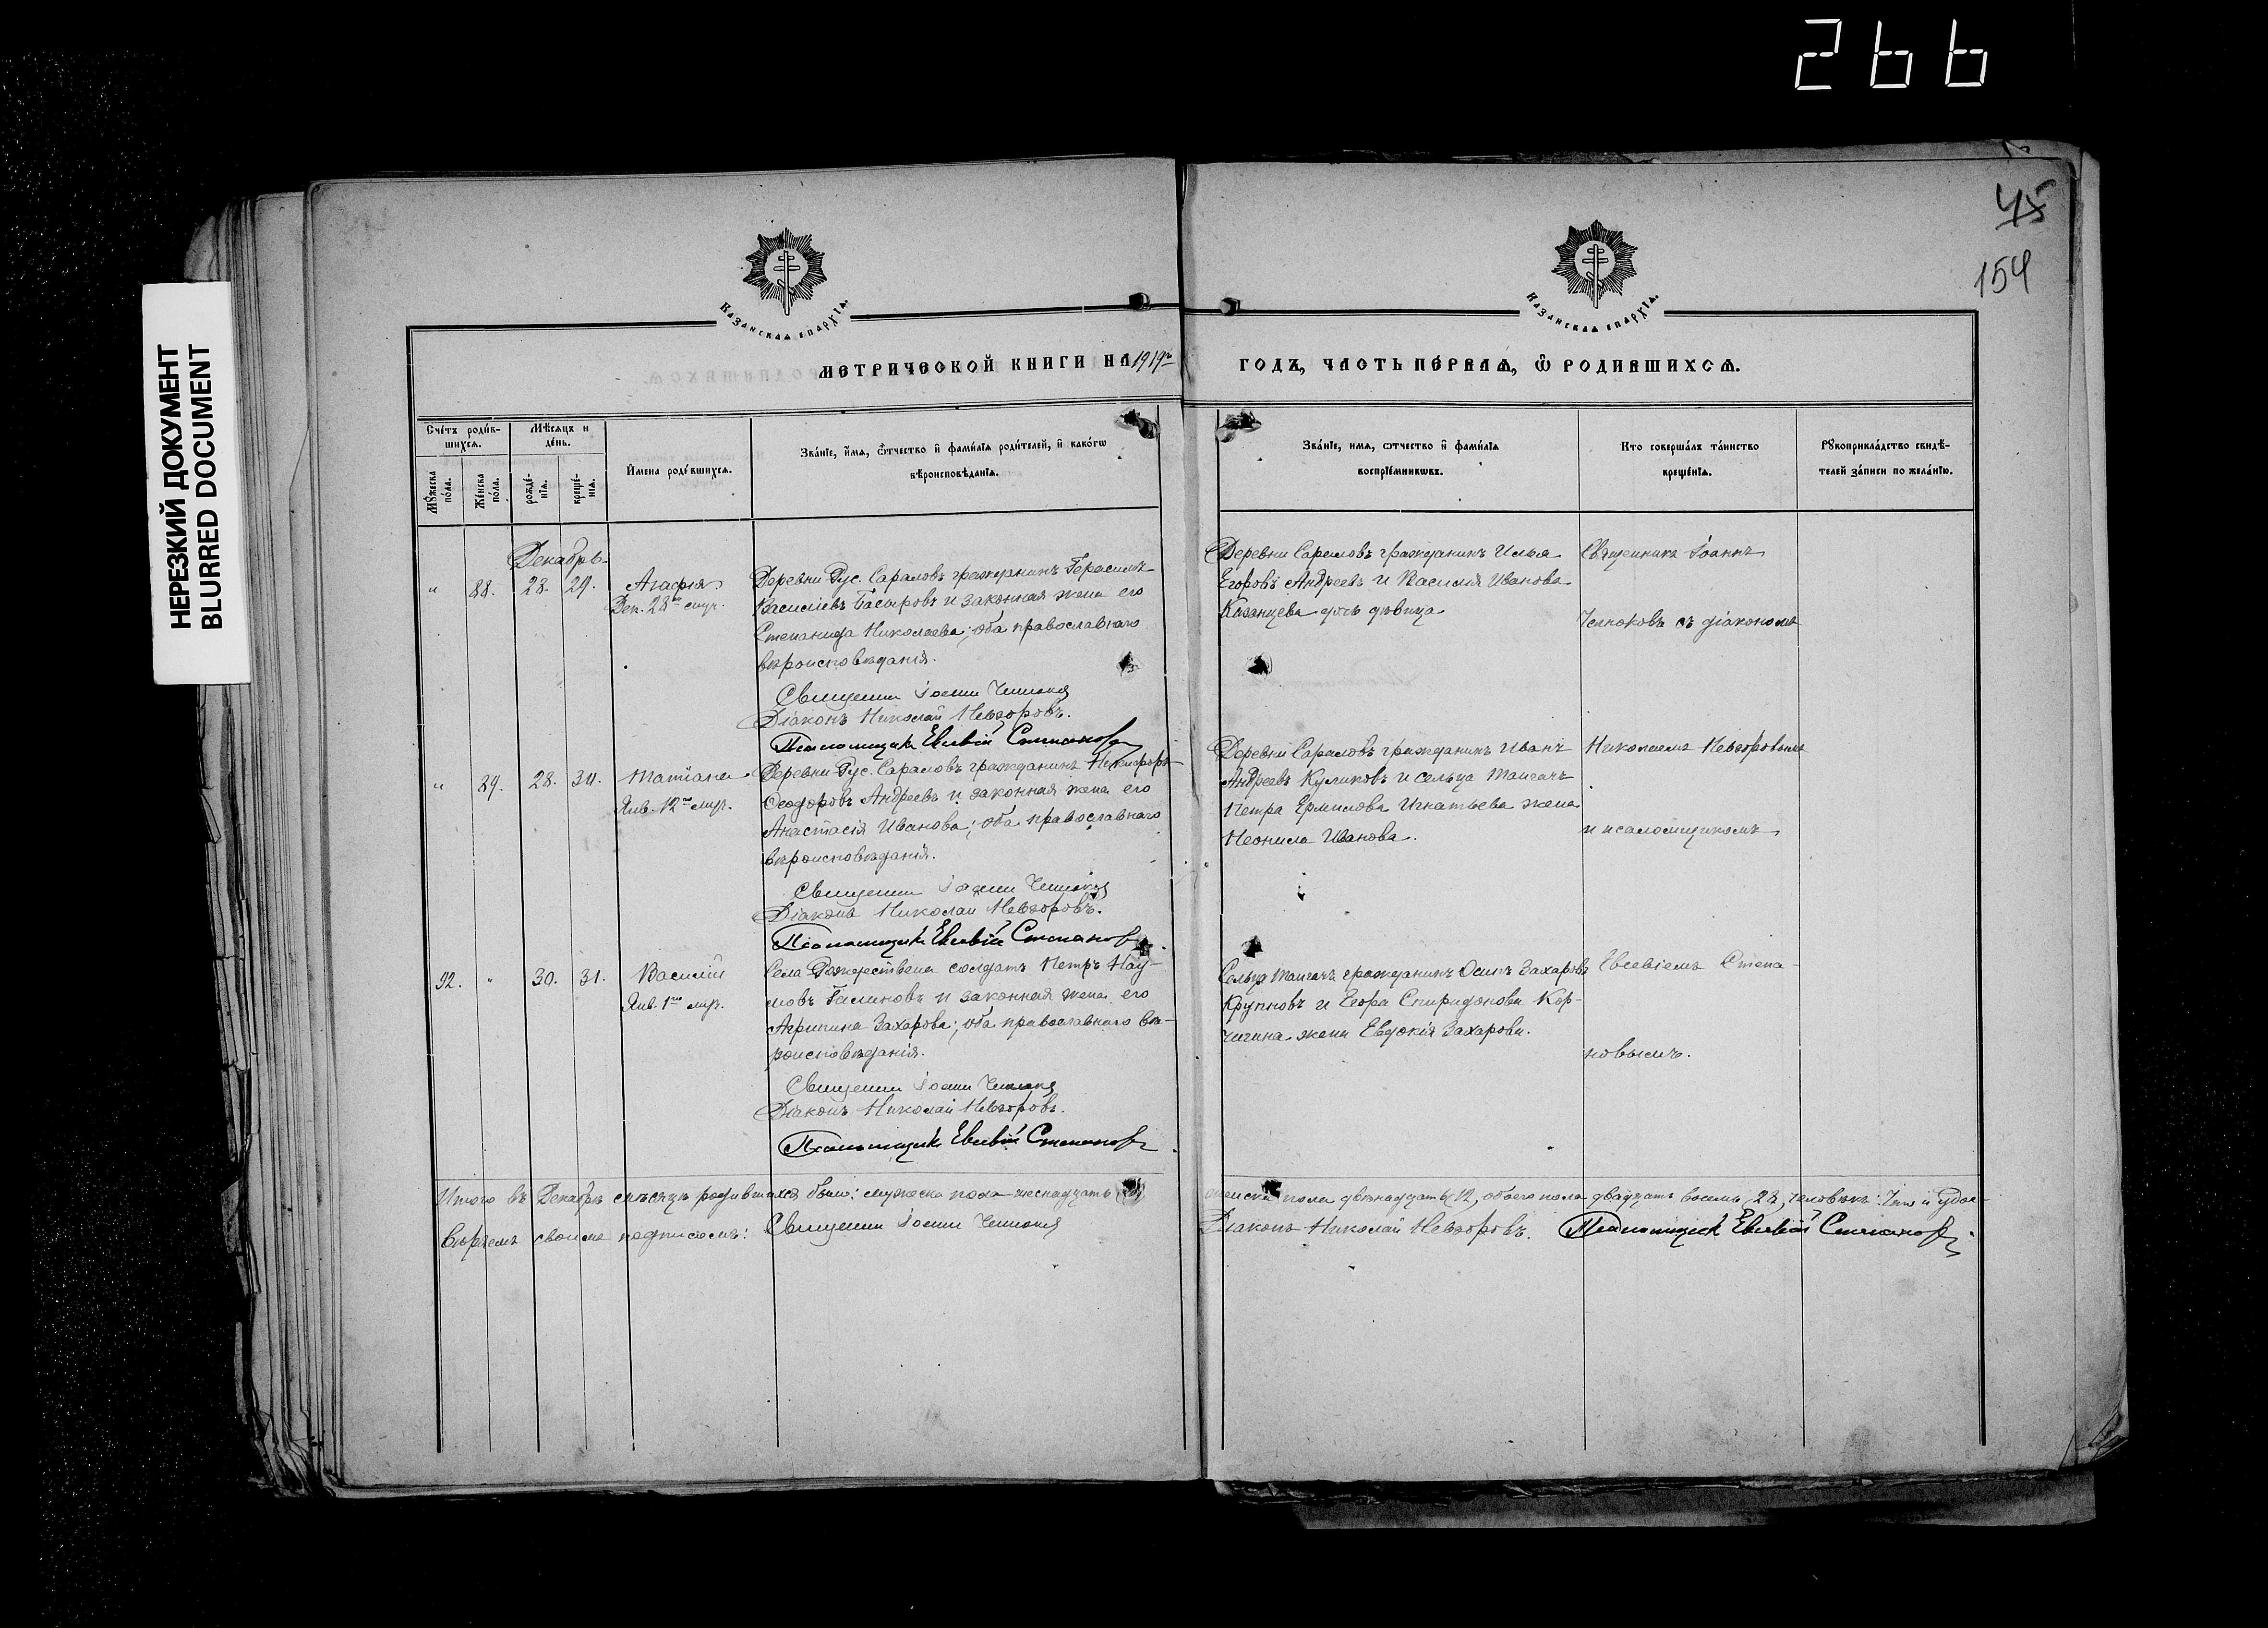 266
45
154
НЕРЕЗКИЙ ДОКУМЕНТ
BLURRED DOCUMENT
КАЗАНСКАѦ ЕПАРХІѦ.
КАЗАНСКАѦ ЕПАРХІѦ.
МЕТРИЧЕСКОЙ КНИГИ НА 1919й ГОДЪ, ЧАСТЬ ПЕ́РВАѦ, Ѽ РОДИВШИХСѦ.
Сче́тъ роди́в-
шихсѧ.
Мѣ́сѧцъ и
де́нь.
Мꙋ́жеска
по́ла.
Же́нска
по́ла.
рожде́-
нїѧ.
креще́-
нїѧ.
И҆мена роди́вшихсѧ.
Зва́нїе, и҆́мѧ, ѻ҆́тчество и҆ фами́лїѧ роди́телей, и҆ како́гѡ
вѣроисповѣ́данїѧ.
Зва́нїе, имѧ, ѻтчество и҆ фами́лїѧ
воспрїе́мникѡвъ.
Кто соверша́лъ та́инство
креще́нїѧ.
Рꙋкоприкла́дство свидѣ́-
телей за́писи по жела́нїю.
Декабрь
" 88. 28. 29. Агафія
Дек. 28го муч.
Деревни Рус. Саралов гражданинъ Герасимъ
Васильевъ Басыровъ и законная жена его
Степанида Николаева; оба православнаго
вѣроисповѣданія.
Священник Іоанн
Діаконъ Николай Невзоровъ.
Псаломщикъ Евсевій Степановъ
Деревни Саралов гражданинъ Илья
Егоровъ Андреевъ и Василія Иванова
Казанцева дочь дѣвица
Священникъ Іоаннъ
съ діакономъ
" 89. 28. 30. Татіана
Янв. 12го муч.
Деревни Рус. Саралов гражданинъ Никифоръ
Ѳеодоровъ Андреевъ и законная жена его
Анастасія Иванова; оба православнаго
вѣроисповѣданія.
Священник Іоанн
Діаконъ Николай Невзоровъ.
Псаломщикъ Евсевій Степановъ.
Деревни Саралов гражданинъ Иванъ
Андреевъ Куликовъ и сельца
Петра Ермилова Игнатьева жена
Неонила Иванова.
Николаемъ Невзоровымъ
и псаломщикомъ
92. " 30. 31. Василій
Янв. 1го
Села Рождествена солдатъ Петръ Нау-
мовъ и законная жена его
Агрипина Захарова; оба православнаго вѣ-
роисповѣданія.
Священник Іоанн
Діаконъ Николай Невзоровъ.
Псаломщикъ Евсевій Степановъ.
Сельца гражданинъ Осипъ Захаровъ
Крупновъ и Егора Спиридонова Кор-
чигина жена Евдокія Захарова.
Евсевіемъ Степа-
новымъ.
Итого въ Декабрѣ мѣсяцѣ родившихся было: мужеска пола шеснадцать женска пола двѣнадцать 12, обоего пола двадцать восемь, 28, человѣкъ.
своимъ подписомъ: Священник Іоанн
Діаконъ Николай Невзоровъ. Псаломщикъ Евсевій Степановъ.